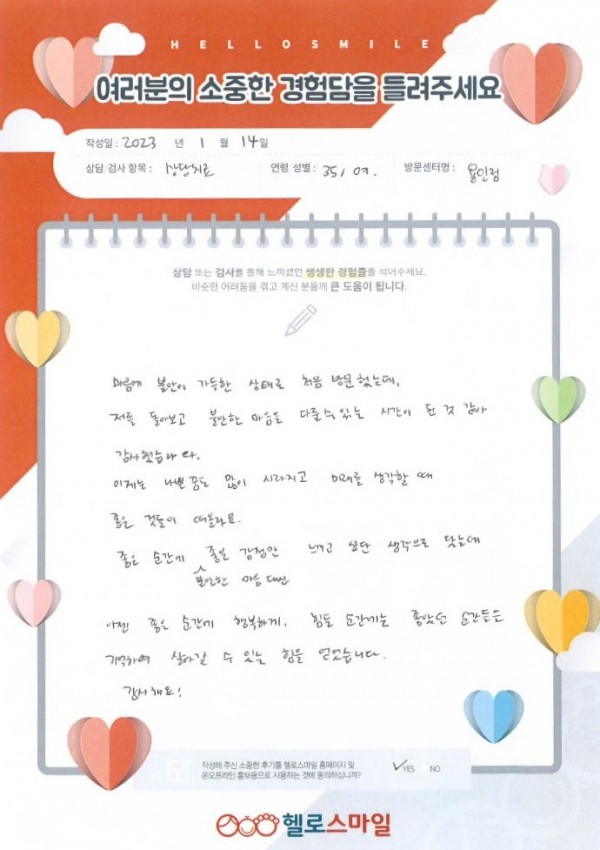 HELLOSMILE
여러분의 소중한 경험담을 들려주세요
작성일 : 2023 년 1 월 14일
상담 검사 항목 : 상담치료 연령 성별 : 35/여. 방문센터명 : 용인점
상담 또는 검사를 통해 느끼셨던 생생한 경험들을 적어주세요.
비슷한 어려움을 겪고 계신 분들께 큰 도움이 됩니다.
마음에 불안이 가득한 상태로 처음 방문했는데,
저를 돌아보고 불안한 마음도 다룰 수 있는 시간이 된 것 같아
감사했습니다.
이제는 나쁜 꿈도 많이 사라지고 미래를 생각할 때
좋은 것들이 떠올라요.
좋은 순간에 좋은 감정만 느끼고 싶단 생각으로 왔는데
불안한 마음 대신
이젠 좋은 순간에 행복하게, 힘든 순간에는 좋았던 순간들을
기억하며 살아갈 수 있는 힘을 얻었습니다.
감사해요!
작성해 주신 소중한 후기를 헬로스마일 홈페이지 및
온오프라인 홍보용으로 사용하는 것에 동의하십니까?
YES NO
헬로스마일